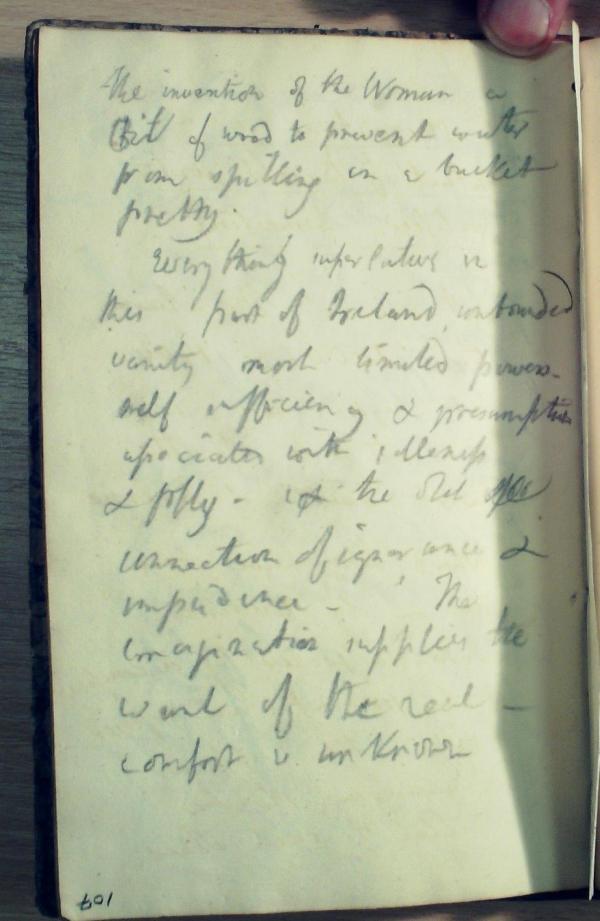 The invention of the Woman a
bit of wood to prevent water
from spilling in a bucket
pretty.
Every thing superlative in
this part of Ireland, unbounded
vanity most limited powers -
self sufficiency & presumption
associates with idleness
& folly - the old
connection of ignorance &
impudence - The
imagination supplies the
want of the real -
comfort is unknown
109